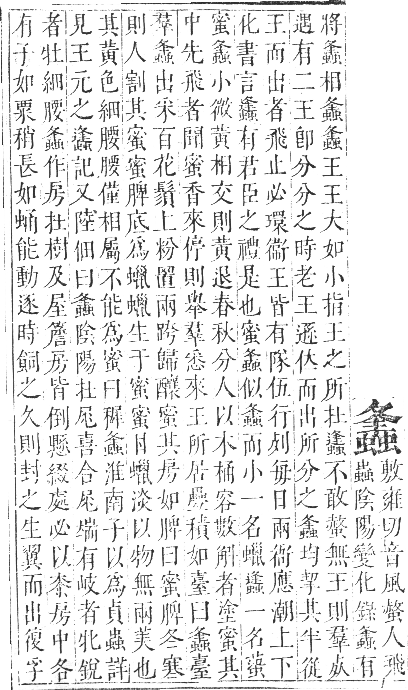 蠭
敷雍切音風螫人飛
蟲陰陽變化錄蠭有
將蠭相蠭蠭王王大如小指王之所在蠭不敢螫無王則羣
遇有二王卽分分之時老王遜伏而出所分之蠭均挈其半從
王而出者飛止必環衞王皆有隊伍行列每日兩衙應潮上下
化書言蠭有君臣之禮是也蜜蠭似蠭而小一名蠟蠭一名
蜜蠭小微黃相交則黃退春秋分人以木桶容數斛者塗蜜其
中先飛者聞蜜香來停則舉羣悉來王所居疊積如臺曰蠭臺
羣蠭出采百花鬚上粉置兩跨歸釀蜜其房如脾曰蜜脾冬寒
則人割其蜜蜜脾底爲蠟蠟生于蜜蜜甘蠟淡以物無兩美也
其黃色細腰腰僅相屬不能爲蜜曰穉蠭淮南子以爲貞蟲詳
見王元之蠭記又陸佃曰蠭陰陽在尾喜合尾端有岐者牝銳
者牡細腰蠭作房在樹及屋簷房皆倒懸綴處必以桼房中各
有子如粟稍長如蛹能動逐時飼之久則封之生翼而出復孚